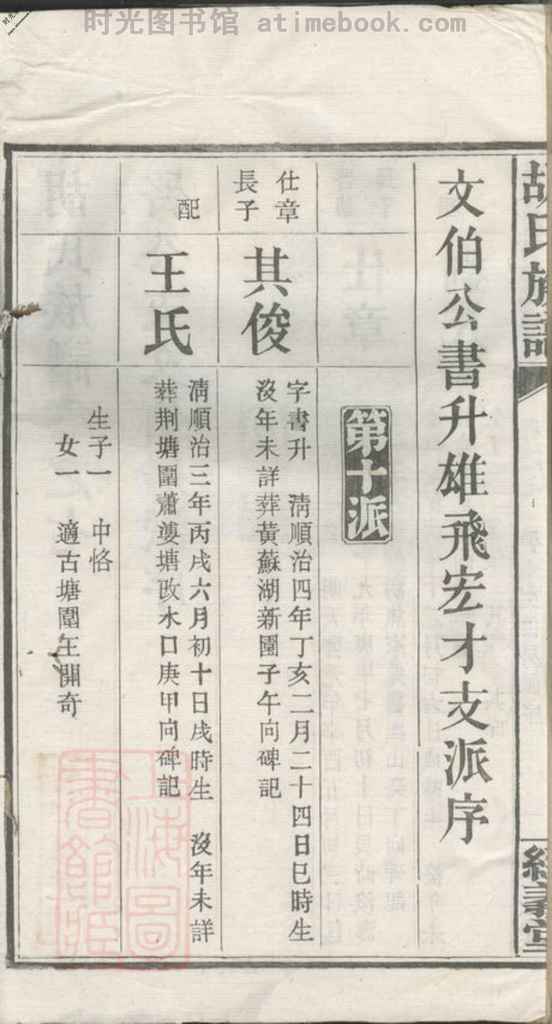 时光图书馆 atimebook.com
胡氏族譜
經義堂
文伯公書升雄飛宏才支派序
第十派
仕章
長子
其俊
字書升 清順治四年丁亥二月二十四日巳時生
沒年未詳葬黃蘇湖新園子午向碑記
配
王氏
清順治三年丙戌六月初十日戌時生 沒年未詳
葬荆塘圍蕭婆塘改水口庚甲向碑記
生子一 中恪
女一 適古塘圍王開奇
上海圖
書館藏